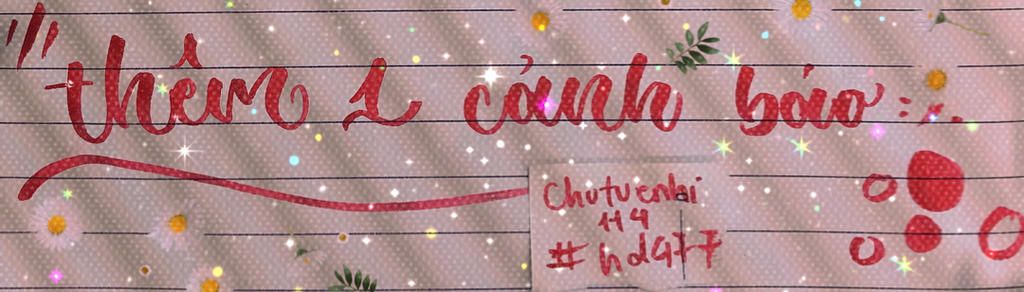 "thêm 1 cảnh báo :
Chutuenhi
114
# hd477